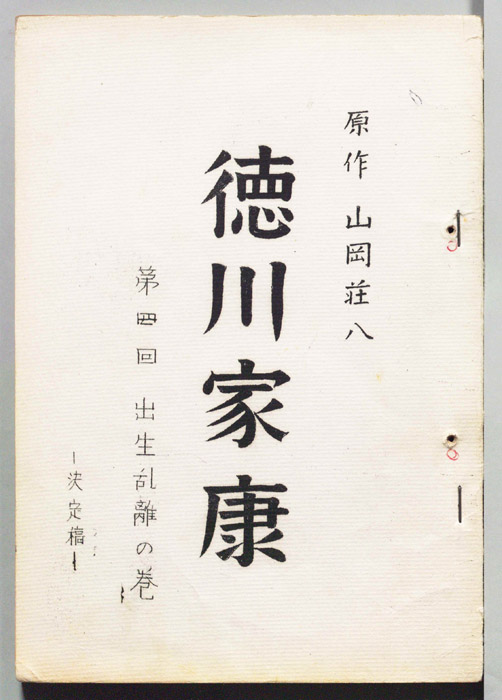 原作 山岡荘八
徳川家康
第四回 出生乱離の巻
―決定稿―